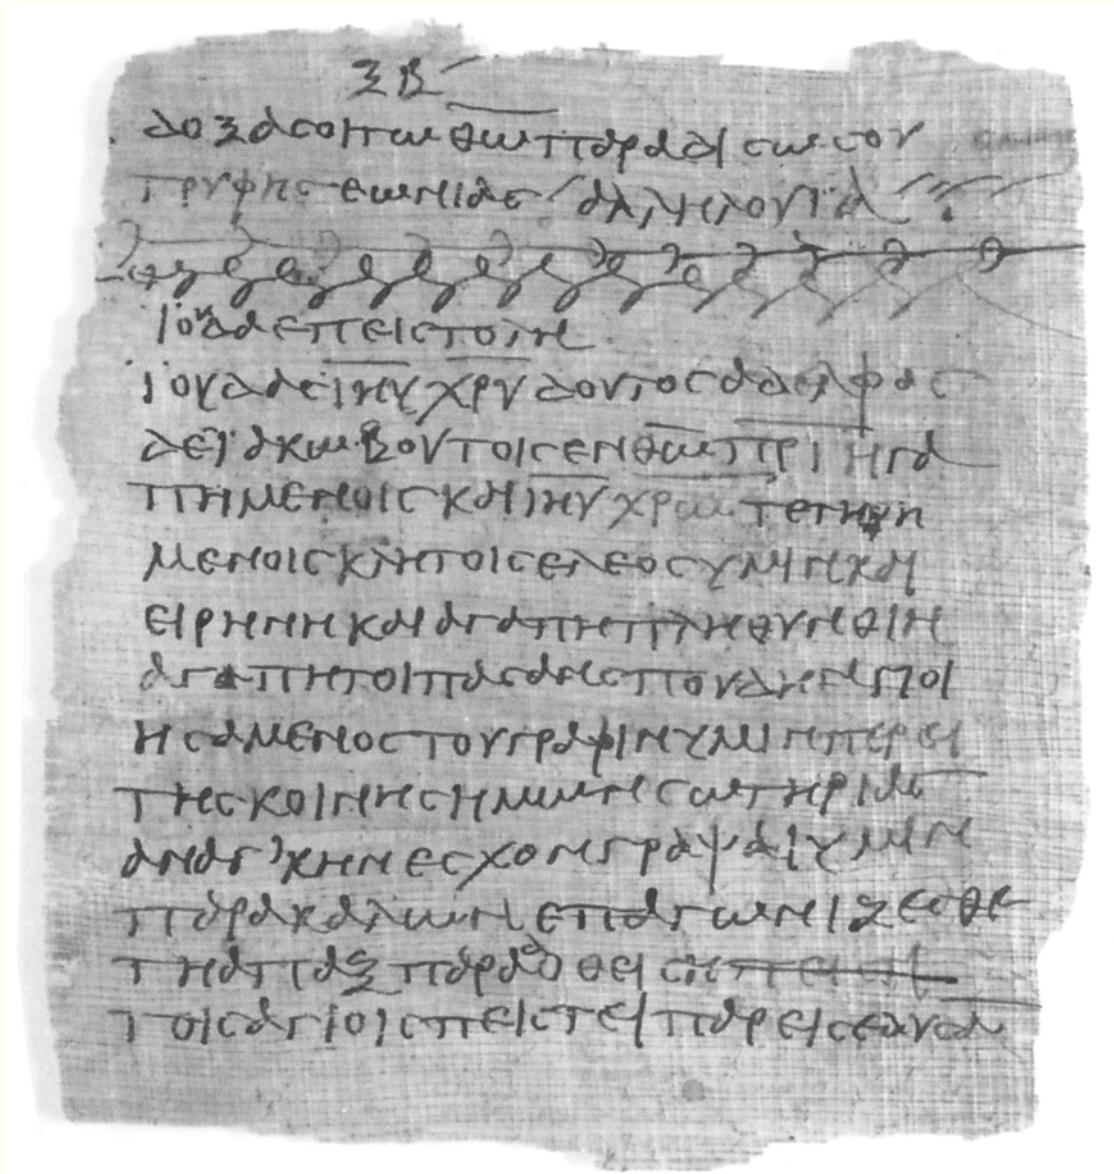 ξβ
δοξασοιτωθωπαραδισωσου
τρυφησεωνιας αλληλουια
ιουδαεπειστολη
ιουδαςιηυχρυδουλοςαδελφος
δειακωβουτοισενθωπριηγα
πημενοισκαιιηυχρωτετηρη
μενοισκλητοισελεοσυμινκαι
ειρηνηκαιαγαπηπληθυνθιη
αγαπητοιπασανσπουδηνποι
ησαμενοστουγραφινυμινπερει
τησκοινησημωνσωτηριας
αναγ’κηνεσχονγραψαιυμιν
παρακαλωνεπαγωνιζεσθε
τηαπαξπαραδοθεισηπειστ
τοισαγιοισπειστειπαρεισεδυσα